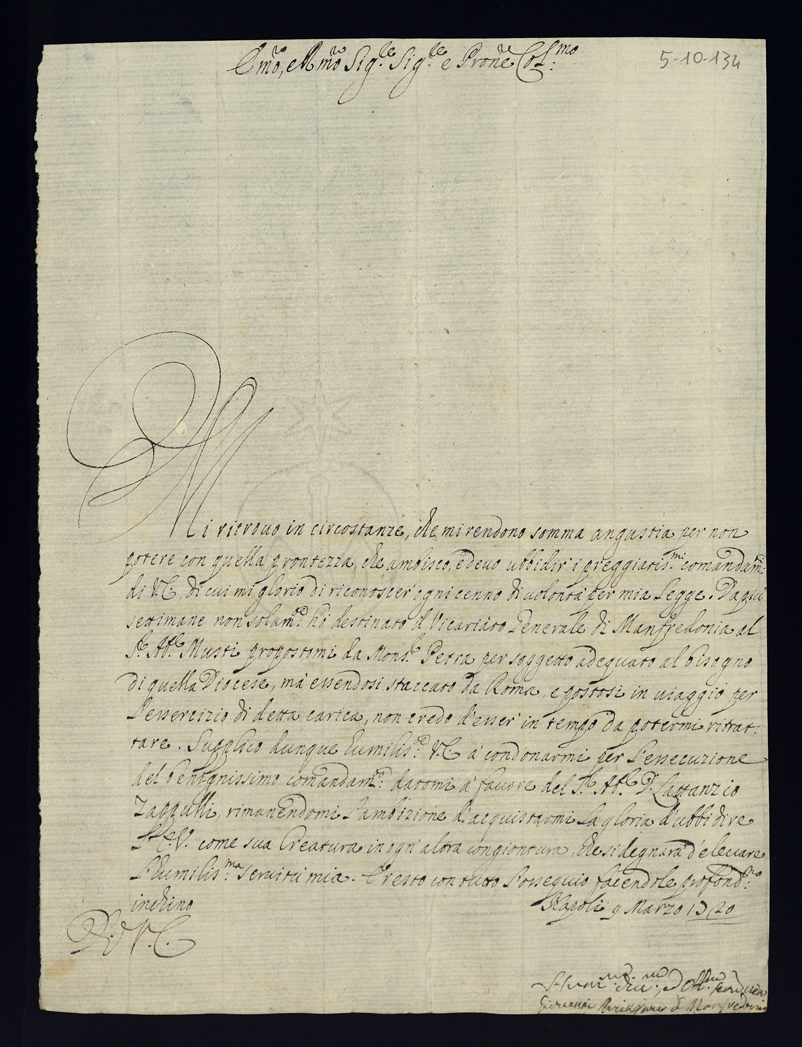 Em.ro, e Rmo Sig.re Sig.re e Prone Col.mo
5-10-134
Mi ritrovo in circostanze, che mi rendono somma angustia per non
potere con quella prontezza, che ambisco, e devo ubbidir' i preggiatis.mi comandam.ti
di V.E. di cui mi glorio di riconoscer' ogni cenno di volontà per mia Legge. Da più
settimane non solam.te hò destinato il Vicariato Generale di Manfredonia al
S.r Ab.e Musti propostomi da Mons.r Petra per soggetto adequato al bisogno
di quella Diocese, mà essendosi staccato da Roma, e postosi in viaggio per
l'essercizio di detta carica, non credo d'esser' in tempo da potermi ritrat-
tare. Supplico dunque humilis.te V.E. à condonarmi per l'essecuzione
del benignissimo comandam.to datomi à favore del S.r Ab.e D. Lattanzio
Zappulli, rimanendomi l'ambizione d'acquistarmi la gloria d'ubbidire
l'E.V. come sua Creatura in ogn'altra congiontura, che si degnarà d'elevare
l'humilis.ma servitù mia. E resto con tutto l'ossequio facendole profond.mo
inchino
Napoli 9 Marzo 1720
D. V. E.
Giovanni Arcivescovo di Manfredonia